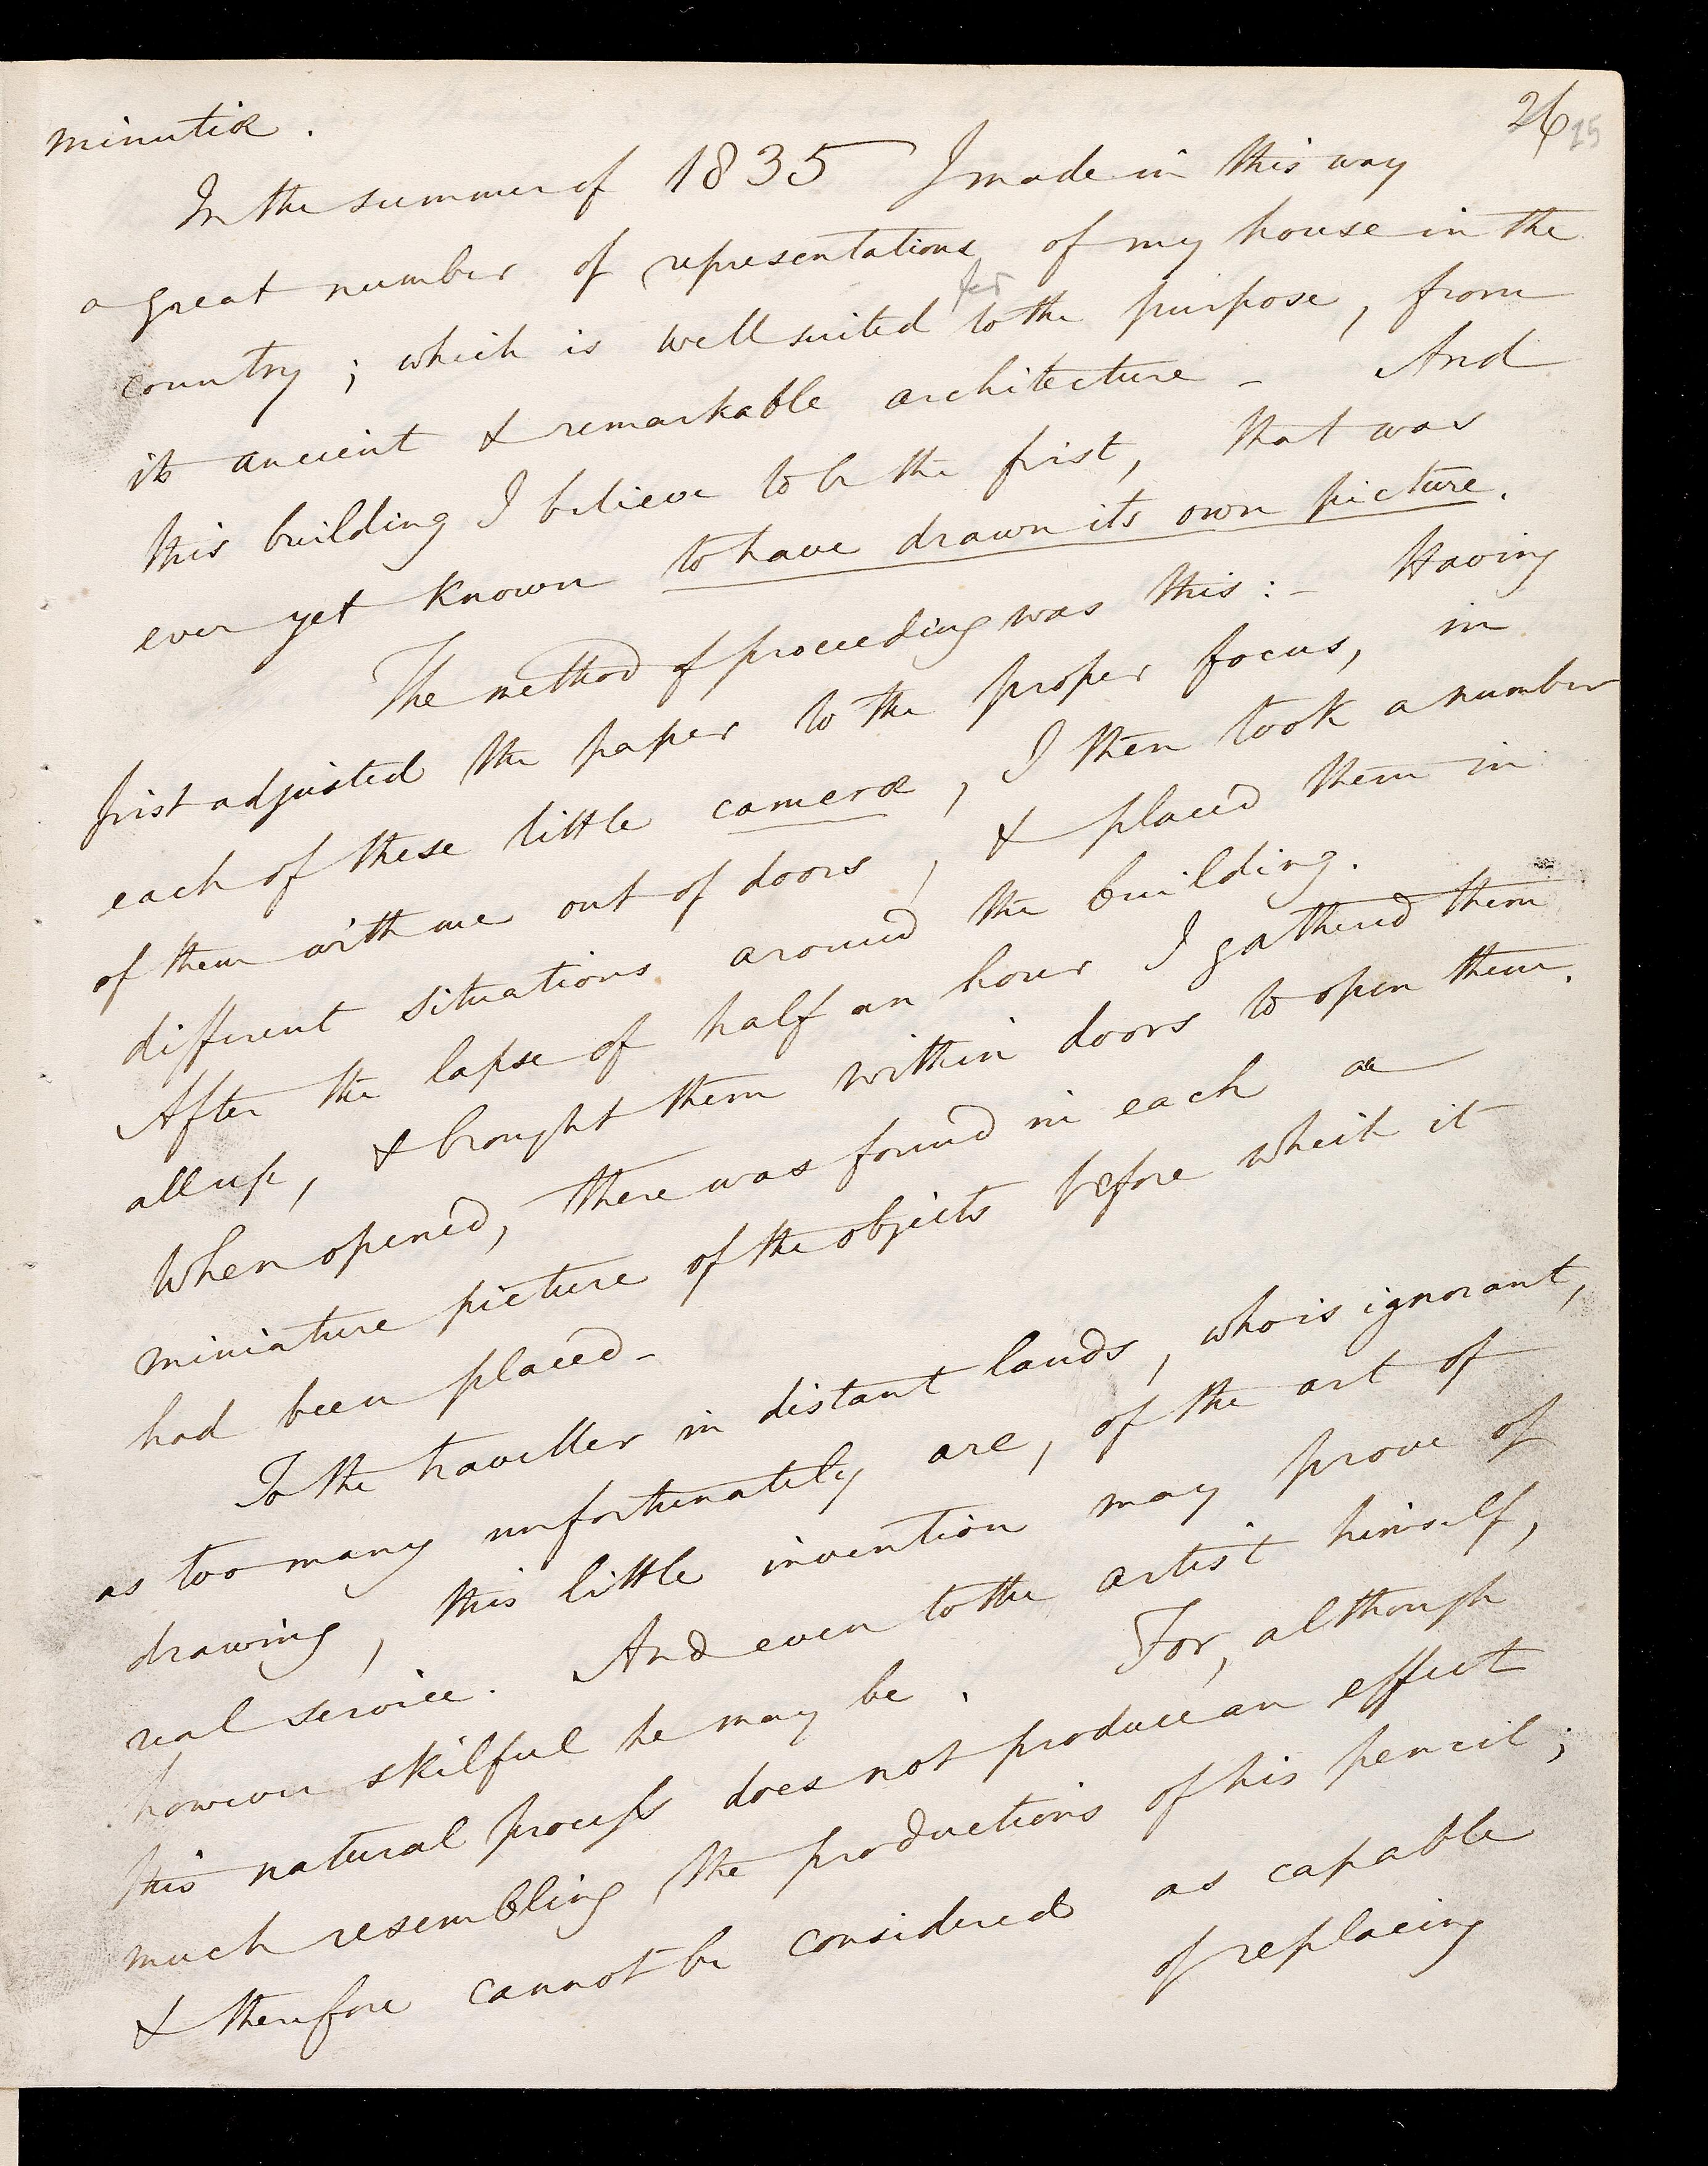 26 25
minutiæ.
In the summer of 1835 I made in this way
a great number of representations of my house in the
for
country; which is well suited to the purpose, from
its ancient & remarkable architecture – And
this building I believe to be the first, that was
ever yet known to have drawn its own picture.
The method of proceeding was this: – Having
first adjusted the paper to the proper focus, in
each of these little cameræ, I then took a number
of them with me out of doors, & placed them in
different situations around the building.
After the lapse of half an hour I gathered them
all up, & brought them within doors to open them.
When opened, there was found in each a
miniature picture of the objects before which it
had been placed –
To the traveller in distant lands, who is ignorant,
as too many unfortunately are, of the art of
drawing, this little invention may prove of
real service. And even to the artist himself,
however skilful he may be. For, although
this natural process does not produce an effect
much resembling the productions of his pencil;
& therefore cannot be considered as capable
of replacing